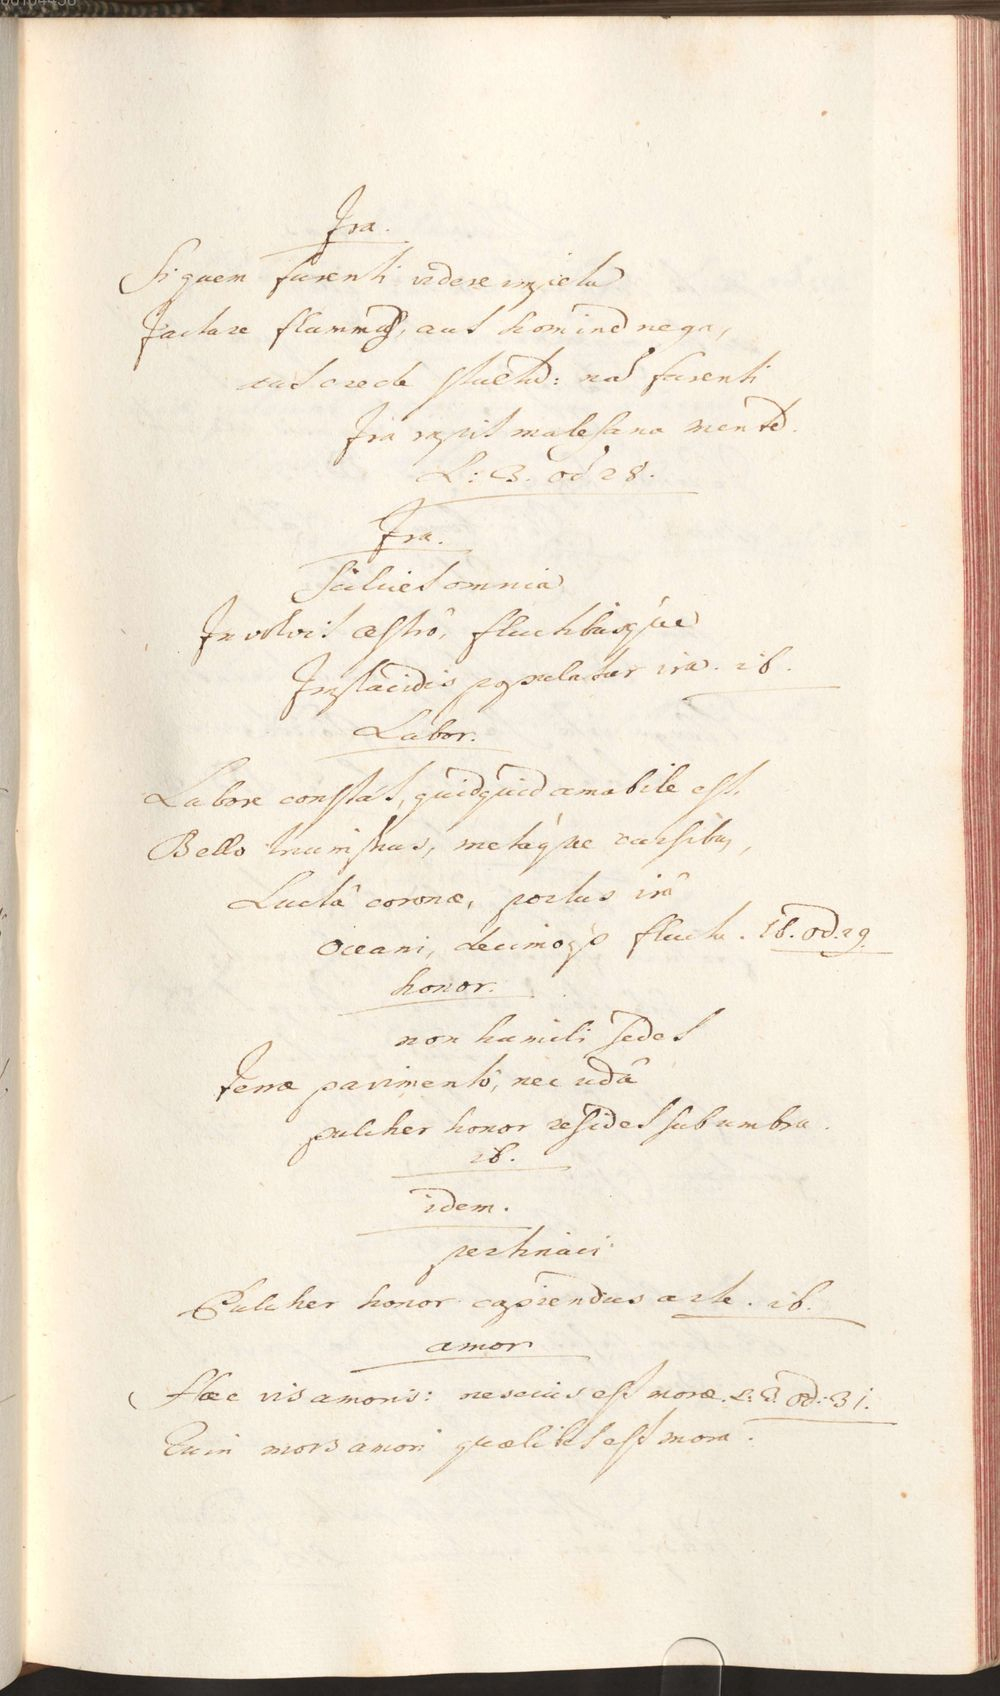 Ira.
Si quem furenti videre impetu
Jactare flammas, aut hominē nega,
aut crede stultū: nā furenti
Ira rapit malesana mentē.
L: 3. od 28.
Ira.
Saluet omnia
Involvit æstrô, fluctibusq́ue
Implacidis populatur ira. ib.
Labor.
Labore constat, quidquid amabile est.
Bello triumphus, metaq́ue cursibus,
Luctâ coronæ, portus irâ
Oceani, decimoq́ fluctu. Ib. od. 29.
honor.
non humili sedet
Terræ pavimentô, nec udâ
pulcher honor residet sub umbra.
ib.
idem.
pertinaci
Pulcher honor capiendus arte. ib.
amor
Hæc vis amoris: nescius est moræ. L: 3. od: 31.
Enin mors amori quælibet est mora.